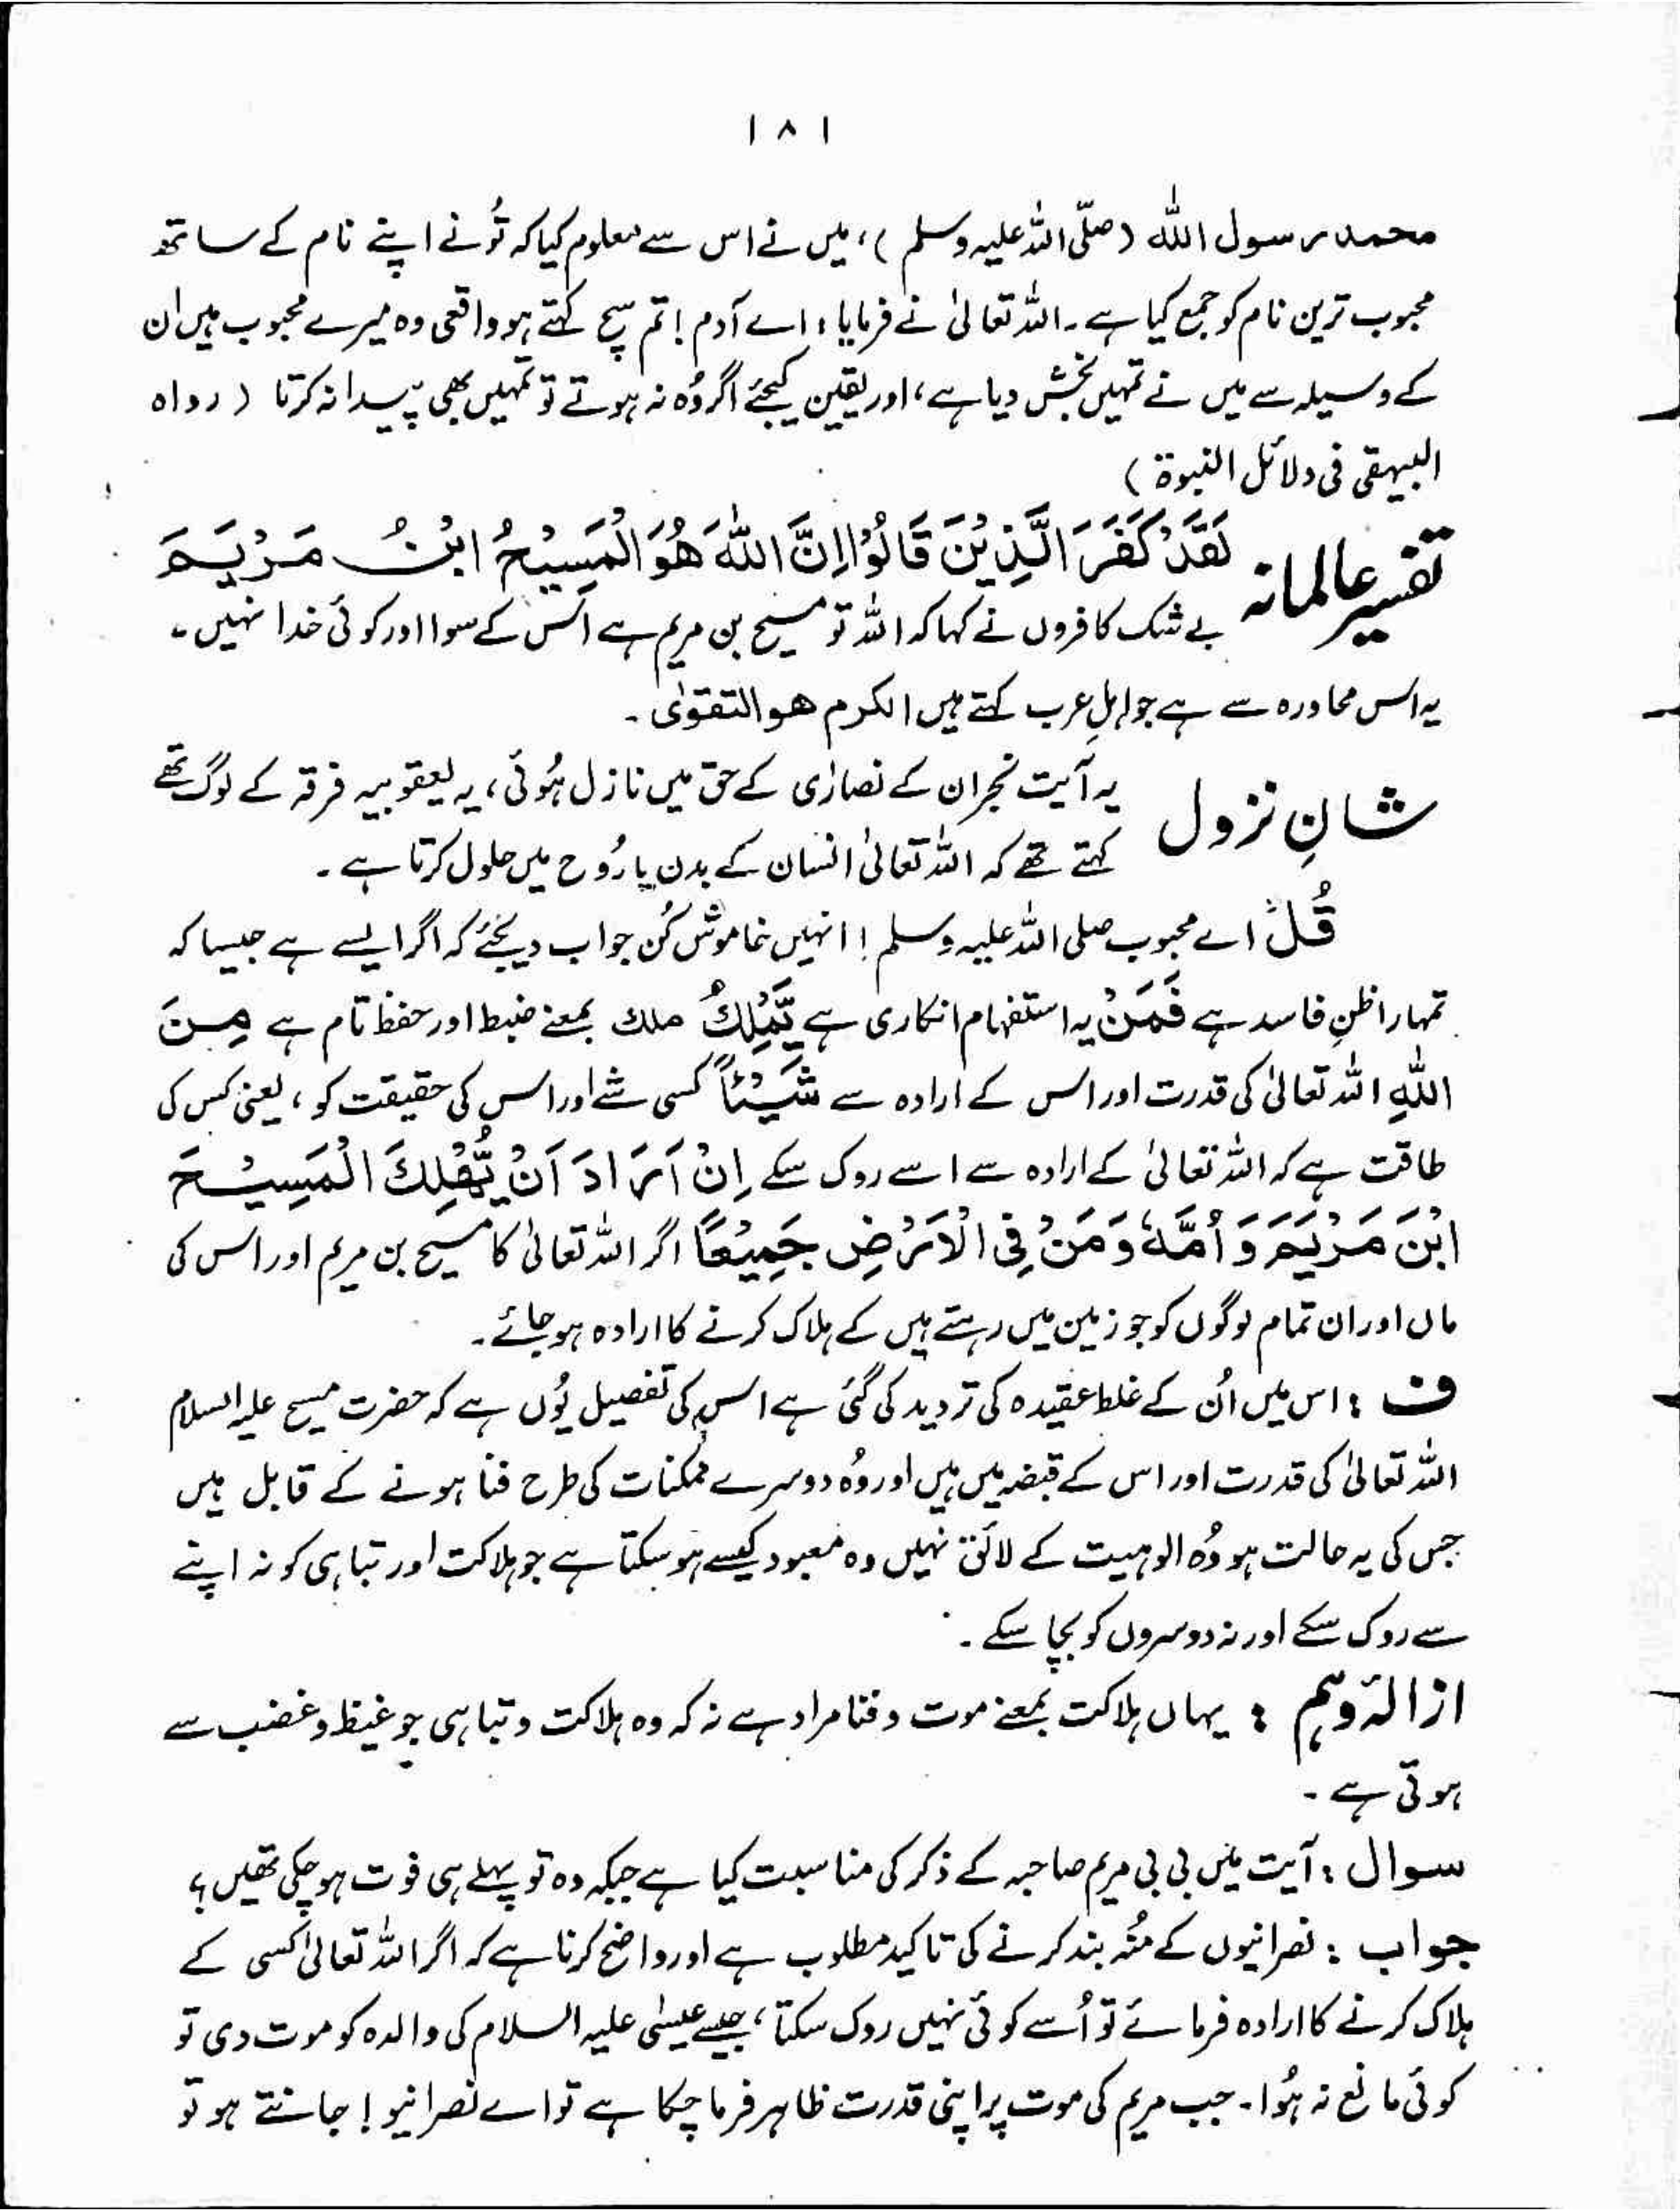 ۱۸۱
محمد رسول اللہ (صلّی اللہ علیہ وسلم)، میں نے اس سے معلوم کیا کہ تُو نے اپنے نام کے ساتھ
محبوب ترین نام کو جمع کیا ہے۔ اللہ تعالیٰ نے فرمایا: اے آدم! تم سچ کہتے ہو واقعی وہ میرے محبوب ہیں ان
کے وسیلہ سے میں نے تمہیں بخش دیا ہے، اور یقین کیجئے اگر وُہ نہ ہوتے تو تمہیں بھی پیدا نہ کرتا (رواہ
البیہقی فی دلائل النبوۃ)
تفسیر عالمانہ لَقَدْ كَفَرَ الَّذِيْنَ قَالُوْا اِنَّ اللّٰهَ هُوَ الْمَسِيْحُ ابْنُ مَرْيَمَ
بے شک کافروں نے کہا کہ اللہ تو مسیح بن مریم ہے اس کے سوا اور کوئی خدا نہیں۔
یہ اس محاورہ سے ہے جو اہلِ عرب کہتے ہیں الکرم ھو التقوٰی۔
شانِ نزول یہ آیت نجران کے نصارٰی کے حق میں نازل ہُوئی، یہ یعقوبیہ فرقہ کے لوگ تھے
کہتے تھے کہ اللہ تعالیٰ انسان کے بدن یا رُوح میں حلول کرتا ہے۔
قُلْ اے محبوب صلی اللہ علیہ وسلم! انہیں خاموش کُن جواب دیجئے کہ اگر ایسے ہے جیسا کہ
تمہارا ظنِ فاسد ہے فَمَنْ یہ استفہام انکاری ہے يَّمْلِكُ ملك بمعنے ضبط اور حفظ تام ہے مِنَ
اللّٰهِ اللہ تعالیٰ کی قدرت اور اس کے ارادہ سے شَيْئًا کسی شے اور اس کی حقیقت کو، یعنی کس کی
طاقت ہے کہ اللہ تعالیٰ کے ارادہ سے اسے روک سکے اِنْ اَرَادَ اَنْ يُّهْلِكَ الْمَسِيْحَ
ابْنَ مَرْيَمَ وَ اُمَّهٗ وَ مَنْ فِي الْاَرْضِ جَمِيْعًا اگر اللہ تعالیٰ کا مسیح بن مریم اور اس کی
ماں اور ان تمام لوگوں کو جو زمین میں رہتے ہیں کے ہلاک کرنے کا ارادہ ہو جائے۔
ف : اس میں اُن کے غلط عقیدہ کی تردید کی گئی ہے اس کی تفصیل یُوں ہے کہ حضرت مسیح علیہ السلام
اللہ تعالیٰ کی قدرت اور اس کے قبضہ میں ہیں اور وُہ دوسرے ممکنات کی طرح فنا ہونے کے قابل ہیں
جس کی یہ حالت ہو وُہ الوہیت کے لائق نہیں وہ معبود کیسے ہو سکتا ہے جو ہلاکت اور تباہی کو نہ اپنے
سے روک سکے اور نہ دوسروں کو بچا سکے۔
ازالۂ وہم : یہاں ہلاکت بمعنے موت و فنا مراد ہے نہ کہ وہ ہلاکت و تباہی جو غیظ و غضب سے
ہوتی ہے۔
سوال : آیت میں بی بی مریم صاحبہ کے ذکر کی مناسبت کیا ہے جبکہ وہ تو پہلے ہی فوت ہو چکی تھیں؟
جواب : نصرانیوں کے مُنہ بند کرنے کی تاکید مطلوب ہے اور واضح کرنا ہے کہ اگر اللہ تعالیٰ کسی کے
ہلاک کرنے کا ارادہ فرمائے تو اُسے کوئی نہیں روک سکتا، جیسے عیسٰی علیہ السلام کی والدہ کو موت دی تو
کوئی مانع نہ ہُوا۔ جب مریم کی موت پر اپنی قدرت ظاہر فرما چکا ہے تو اے نصرانیو! جانتے ہو تو